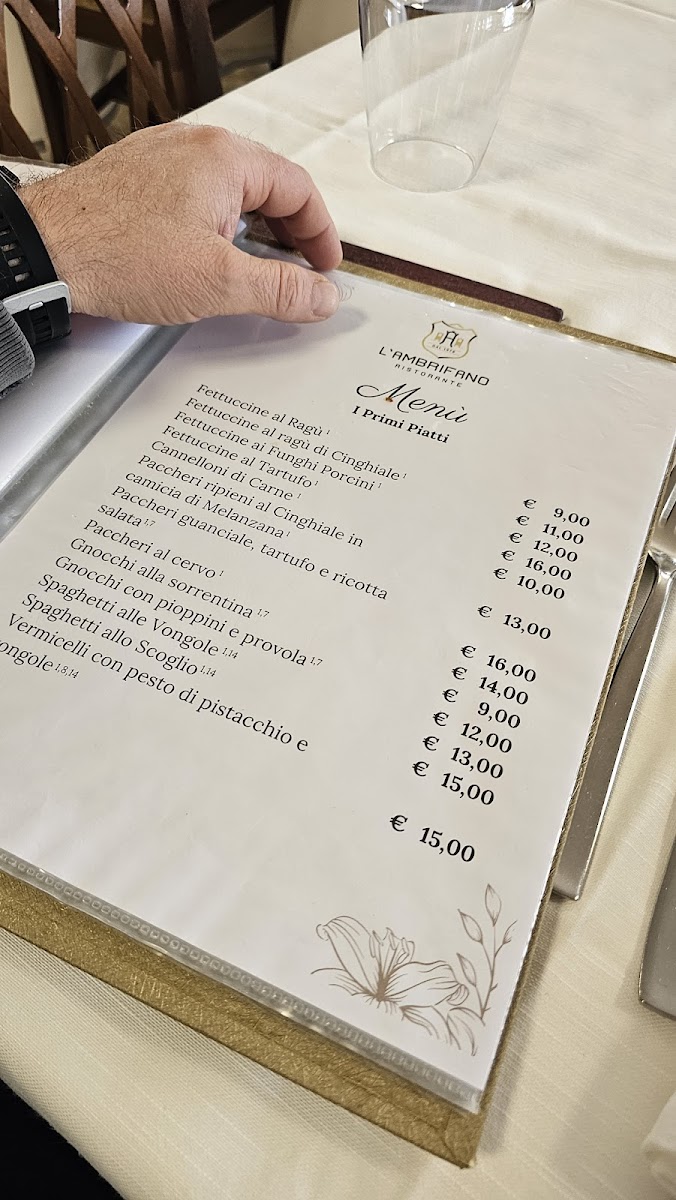 L'AMBRIFANO
RISTORANTE
Menù
I Primi Piatti
Fettuccine al Ragù 1 € 9,00
Fettuccine al ragù di Cinghiale 1 € 11,00
Fettuccine ai Funghi Porcini 1 € 12,00
Fettuccine al Tartufo 1 € 16,00
Cannelloni di Carne 1 € 10,00
Paccheri ripieni al Cinghiale in
camicia di Melanzana 1 € 13,00
Paccheri guanciale, tartufo e ricotta
salata 1,7 € 16,00
Paccheri al cervo 1 € 14,00
Gnocchi alla sorrentina 1,7 € 9,00
Gnocchi con pioppini e provola 1,7 € 12,00
Spaghetti alle Vongole 1,14 € 13,00
Spaghetti allo Scoglio 1,14 € 15,00
Vermicelli con pesto di pistacchio e
ongole 1,8,14 € 15,00